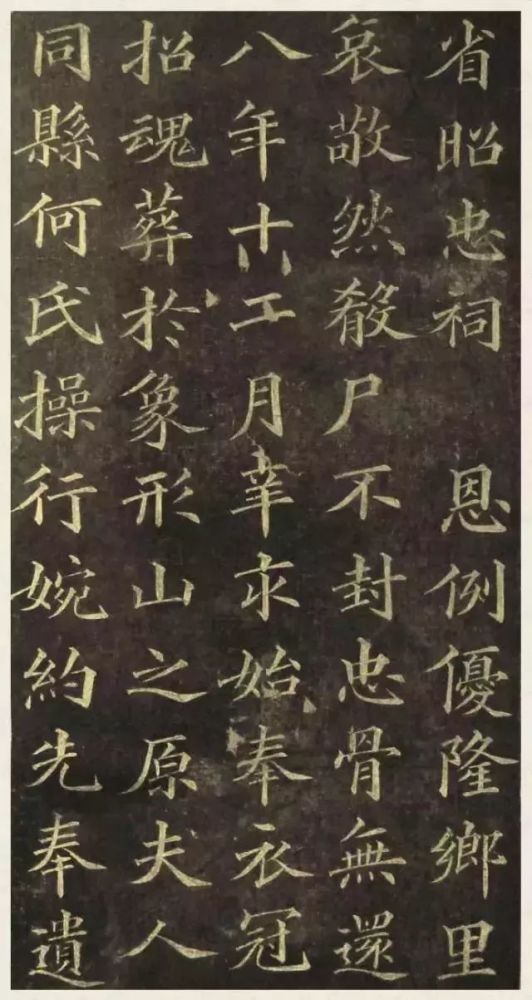 省昭忠祠　恩例優隆鄉里
哀敬然殽尸不封忠骨無還
八年十二月辛始奉衣冠
招魂葬於象形山之原夫人
同縣何氏操行婉約先奉遺